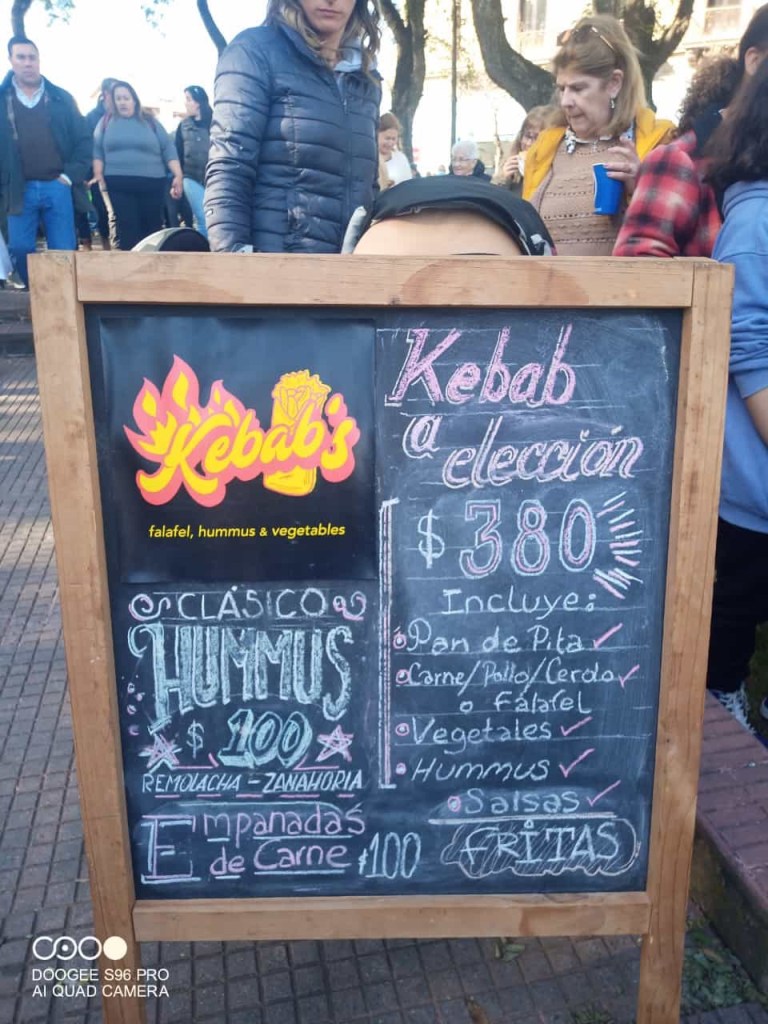 Kebab's
falafel, hummus & vegetables
CLÁSICO
HUMMUS
$ 100
REMOLACHA - ZANAHORIA
Empanadas
de Carne $100
Kebab
a elección
$ 380
Incluye:
Pan de Pita
Carne/Pollo/Cerdo
o Falafel
Vegetales
Hummus
Salsas
FRITAS
DOOGEE S96 PRO
AI QUAD CAMERA